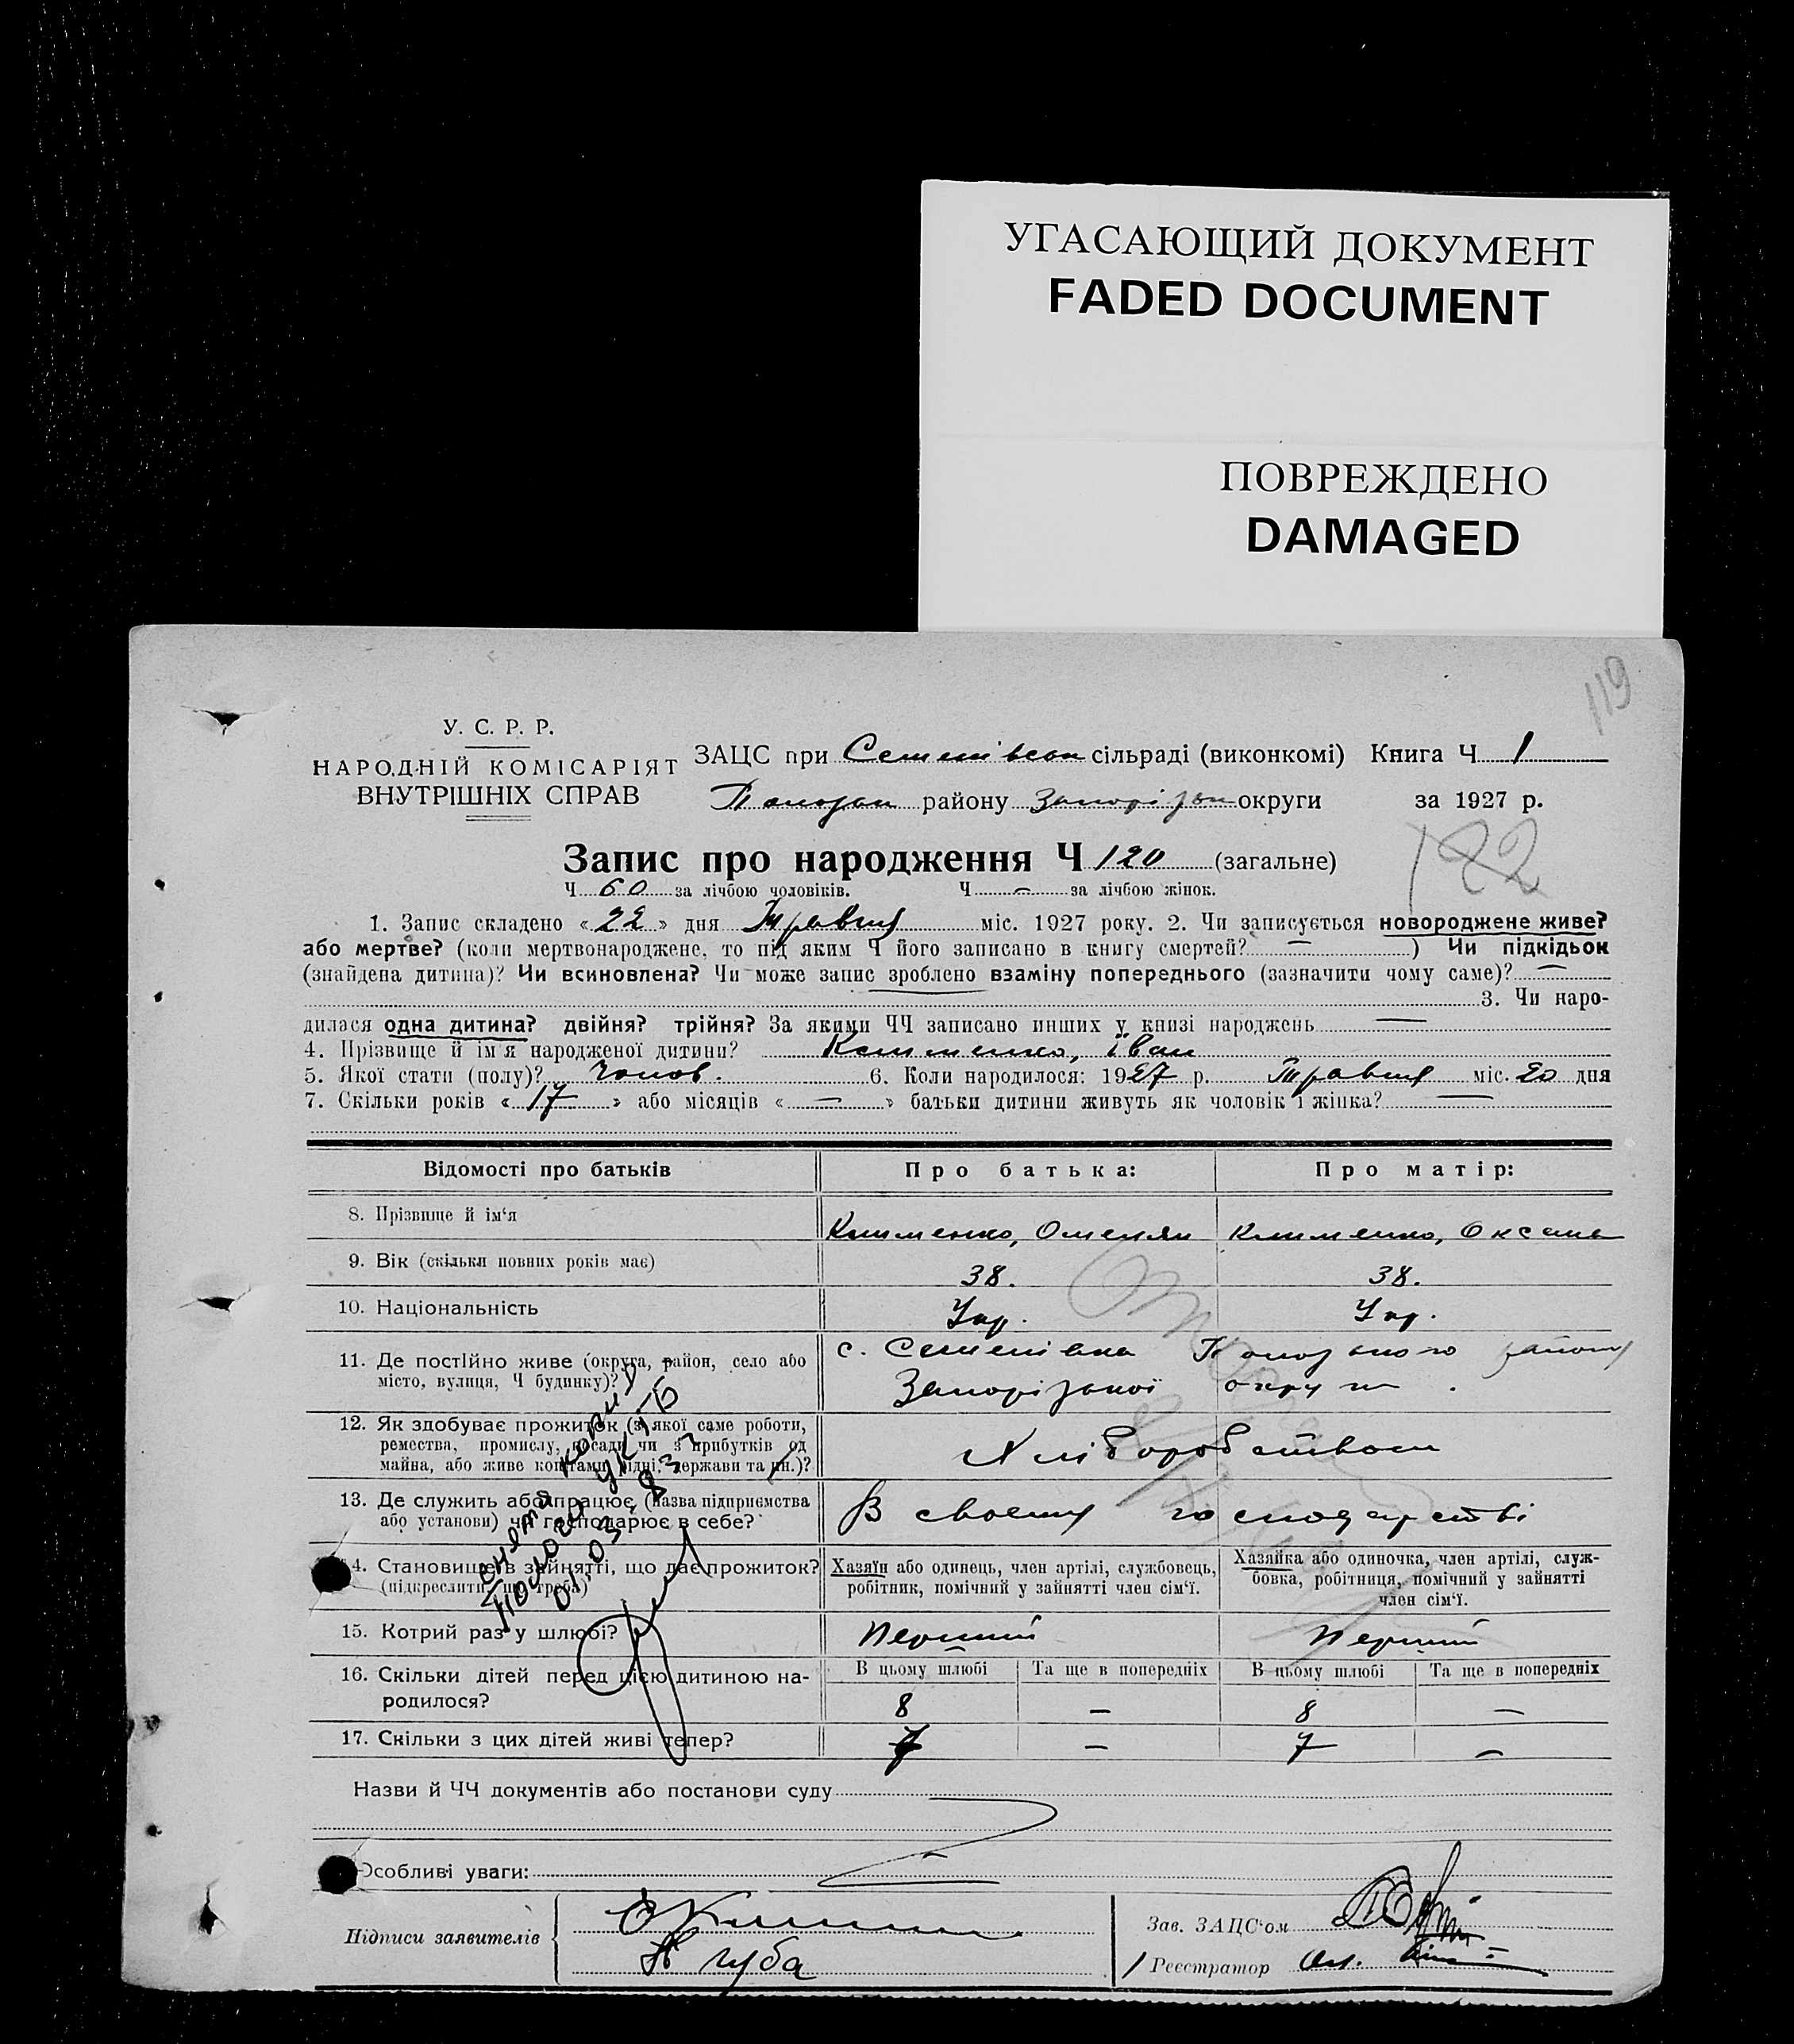 УГАСАЮЩИЙ ДОКУМЕНТ
FADED DOCUMENT
ПОВРЕЖДЕНО
DAMAGED
119
У. С. Р. Р.
НАРОДНІЙ КОМІСАРІЯТ
ВНУТРІШНІХ СПРАВ
ЗАЦС при сільраді (виконкомі) Книга Ч 1
району округи за 1927 р.
122
Запис про народження Ч 120 (загальне)
Ч 60 за лічбою чоловіків. Ч — за лічбою жінок.
1. Запис складено « 22 » дня Травня міс. 1927 року. 2. Чи записується новороджене живе?
або мертве? (коли мертвонароджене, то під яким Ч його записано в книгу смертей? — ) Чи підкідьок
(знайдена дитина)? Чи всиновлена? Чи може запис зроблено взаміну попереднього (зазначити чому саме)? —
3. Чи наро-
дилася одна дитина? двійня? трійня? За якими ЧЧ записано инших у книзі народжень —
4. Прізвище й ім'я народженої дитини? Клименко, Іван
5. Якої стати (полу)? Чолов. 6. Коли народилося: 1927 р. Травня міс. 20 дня
7. Скільки років « 17 » або місяців « — » батьки дитини живуть як чоловік і жінка? —
Відомості про батьків Про батька: Про матір:
8. Прізвище й ім'я Клименко, Омелян Клименко, Оксана
9. Вік (скільки повних років має) 38. 38.
10. Національність Укр. Укр.
11. Де постійно живе (округа, район, село або місто, вулиця, Ч будинку)?
с. Семенівка Пологського району
Запорізької округи.
12. Як здобуває прожиток (з якої саме роботи,
ремества, промислу, посади чи з прибутків од
майна, або живе коштами рідні, держави та ин.)?
Хліборобством
13. Де служить або працює (назва підприємства
або установи) чи господарює в себе?
В своєму господарстві
14. Становище в зайнятті, що дає прожиток?
(підкреслити, що треба)
Хазяїн або одинець, член артілі, службовець,
робітник, помічний у зайнятті член сім'ї.
Хазяйка або одиночка, член артілі, служ-
бовка, робітниця, помічний у зайнятті
член сім'ї.
15. Котрий раз у шлюбі? Перший Перший
16. Скільки дітей перед цією дитиною на-
родилося?
В цьому шлюбі Та ще в попередніх В цьому шлюбі Та ще в попередніх
8 — 8 —
17. Скільки з цих дітей живі тепер? 7 — 7 —
Назви й ЧЧ документів або постанови суду
Особливі уваги: —
Підписи заявителів
Н Губа
Зав. ЗАЦС'ом
Реєстратор